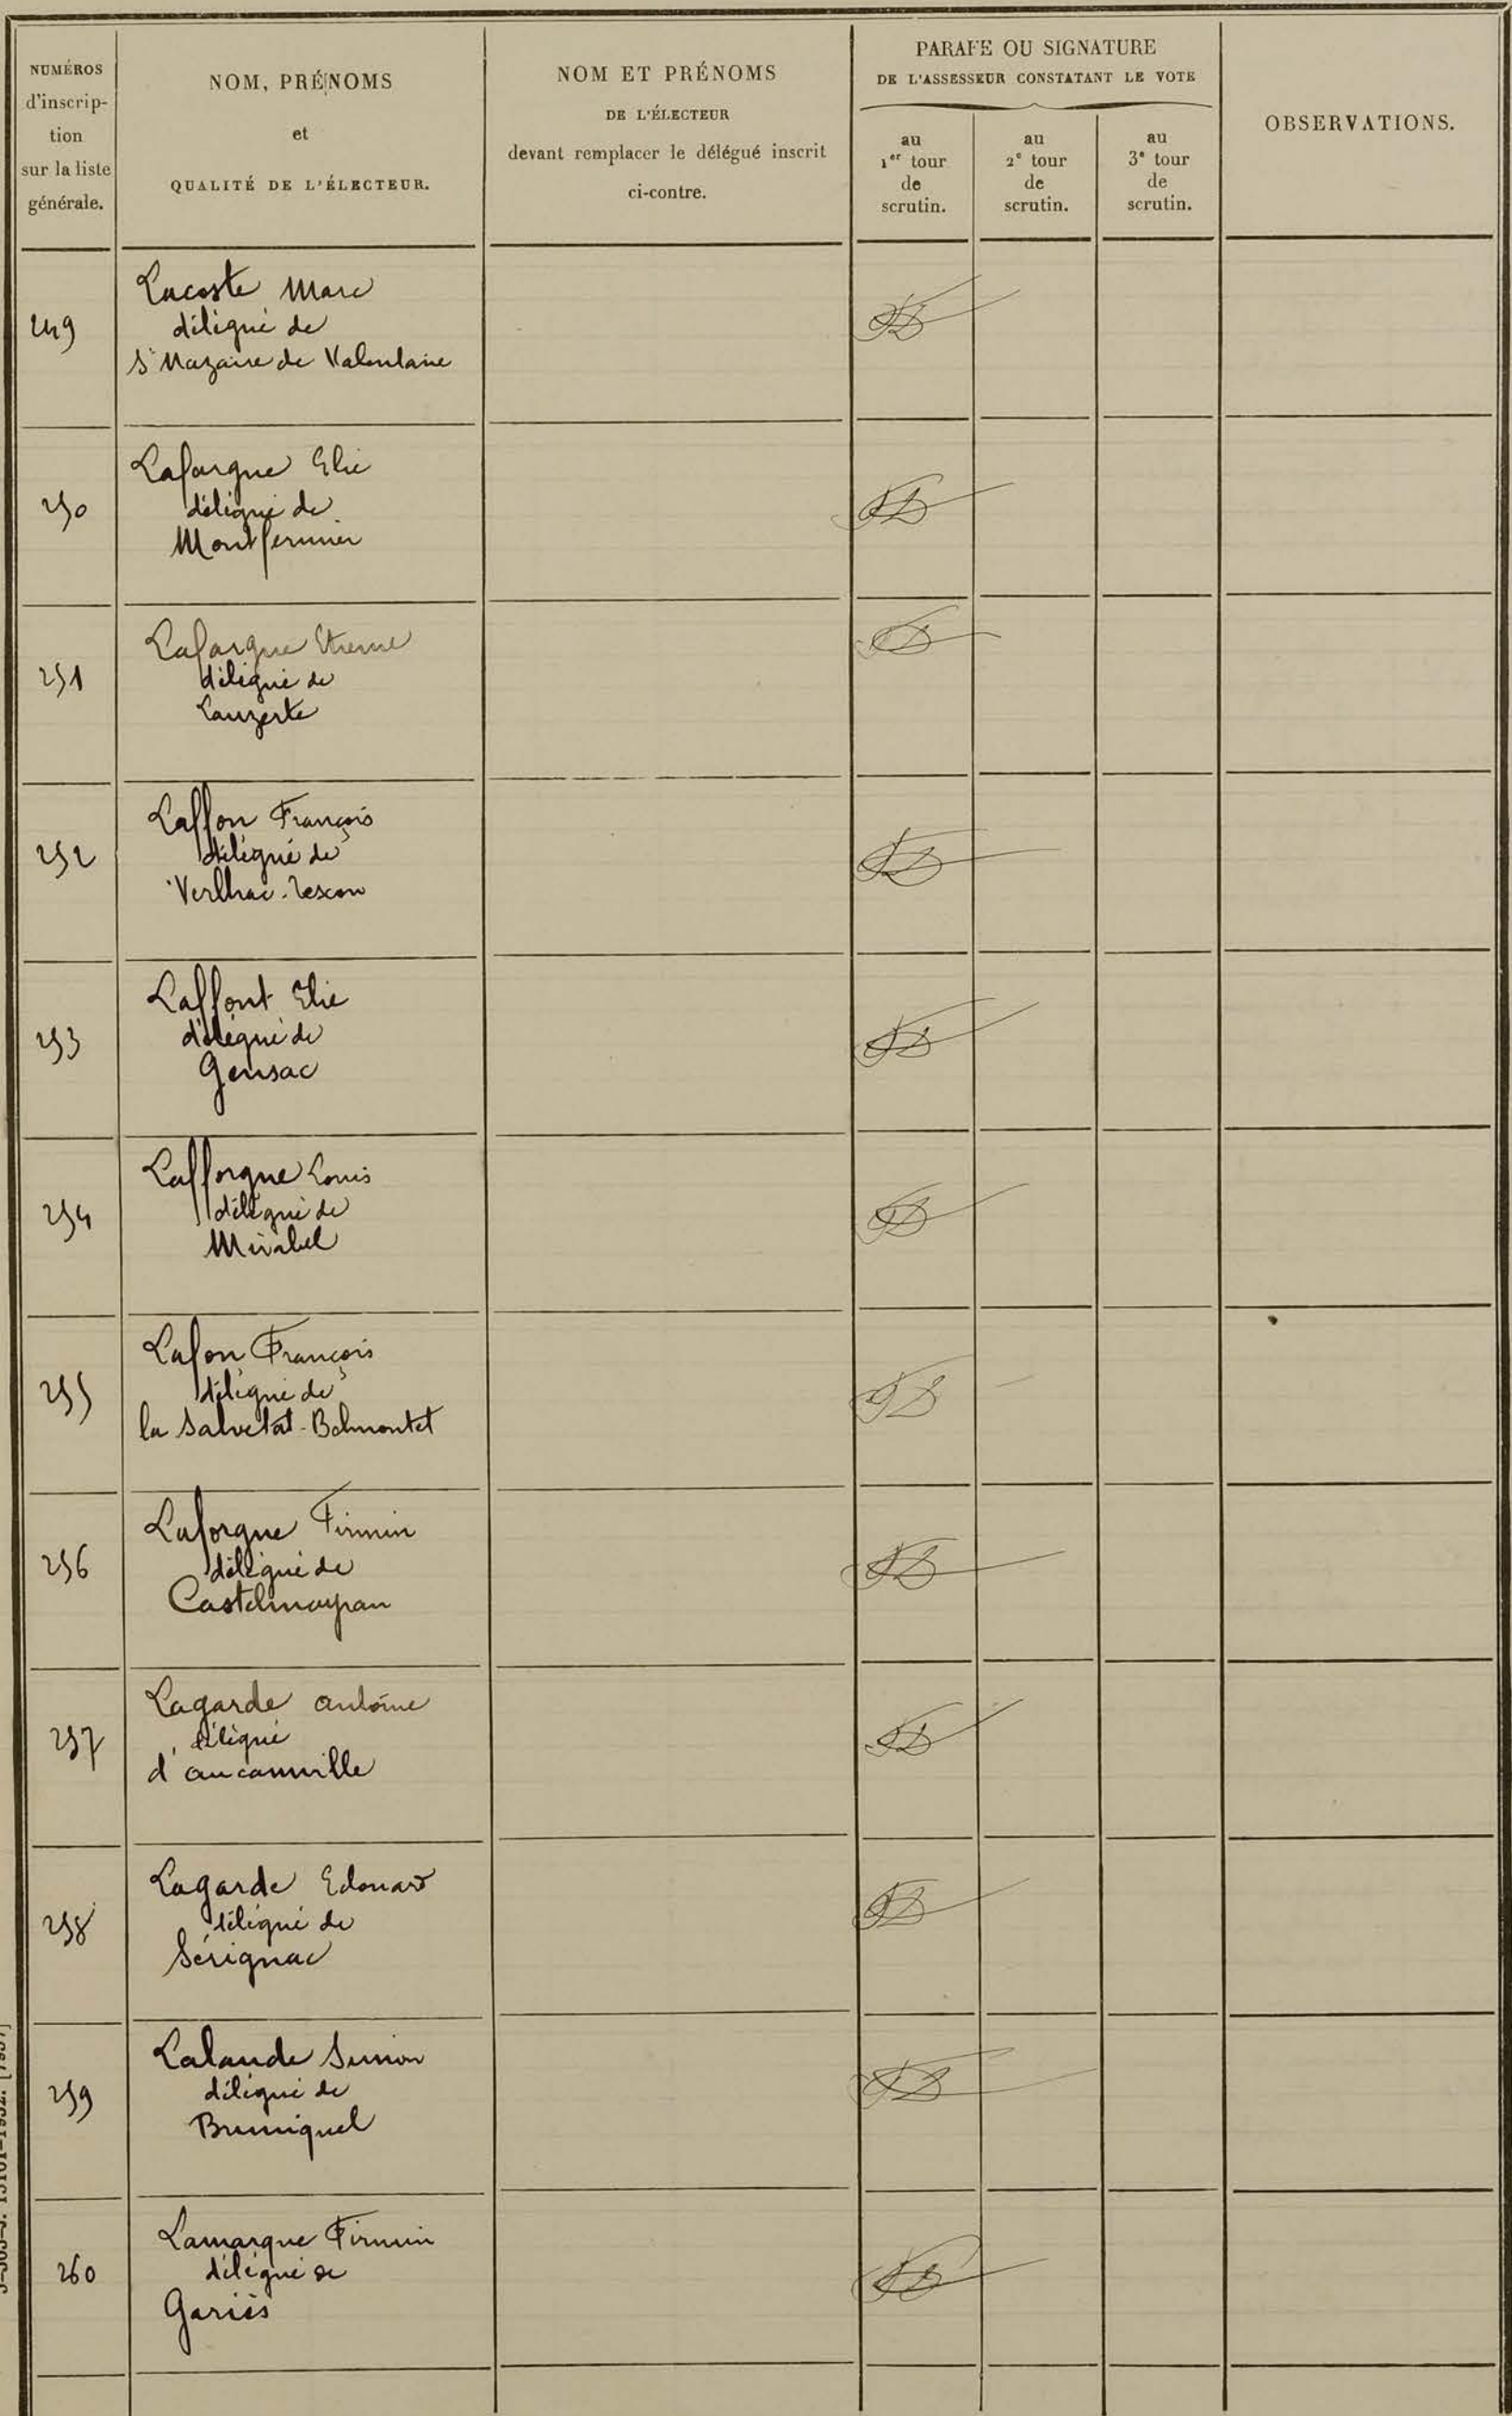 NUMÉROS
d'inscrip-
tion
sur la liste
générale.
NOM, PRÉNOMS
et
QUALITÉ DE L'ÉLECTEUR.
NOM ET PRÉNOMS
DE L'ÉLECTEUR
devant remplacer le délégué inscrit
ci-contre.
PARAFE OU SIGNATURE
DE L'ASSESSEUR CONSTATANT LE VOTE
au
1er tour
de
scrutin.
au
2e tour
de
scrutin.
au
3e tour
de
scrutin.
OBSERVATIONS.
249
Lacoste Marc
délégué de
St Nazaire de Valentane
250
Lafargue Elie
délégué de
Montfermier
251
Lafargue Etienne
délégué de
Lauzerte
252
Laffon François
délégué de
Verlhac-Tescou
253
Laffont Elie
délégué de
Gensac
254
Lafforgue Louis
délégué de
Mirabel
255
Lafon François
délégué de
la Salvetat-Belmontet
256
Laforgue Firmin
délégué de
Castelmayran
257
Lagarde antoine
délégué
d'aucamville
258
Lagarde Edouard
délégué de
Sérignac
259
Lalande Simon
délégué de
Bruniquel
260
Lamarque Firmin
délégué de
Gariès